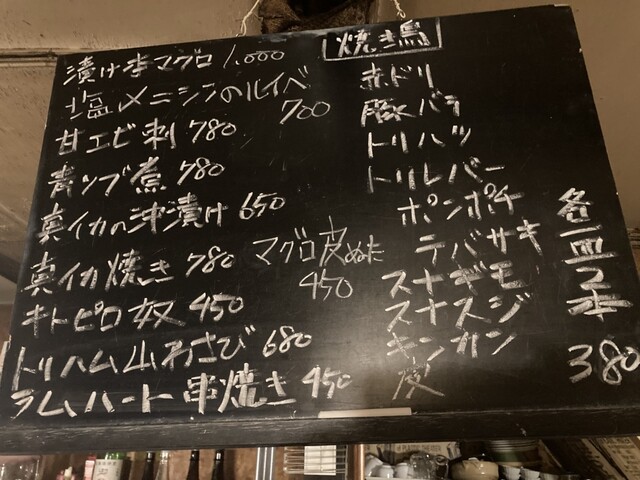 漬け本マグロ 1,000
塩〆ニシンのルイベ 700
甘エビ刺 780
青ツブ煮 780
真イカの沖漬け 650
真イカ焼き 780
キトピロ奴 450
トリハム山わさび 680
ラムハート串焼き 450
マグロ皮ぬた
450
焼き鳥
赤ドリ
豚バラ
トリハツ
トリレバー
ボンボチ
テバサキ
スナギモ
スナスジ
キンカン
皮
各一皿2本
380